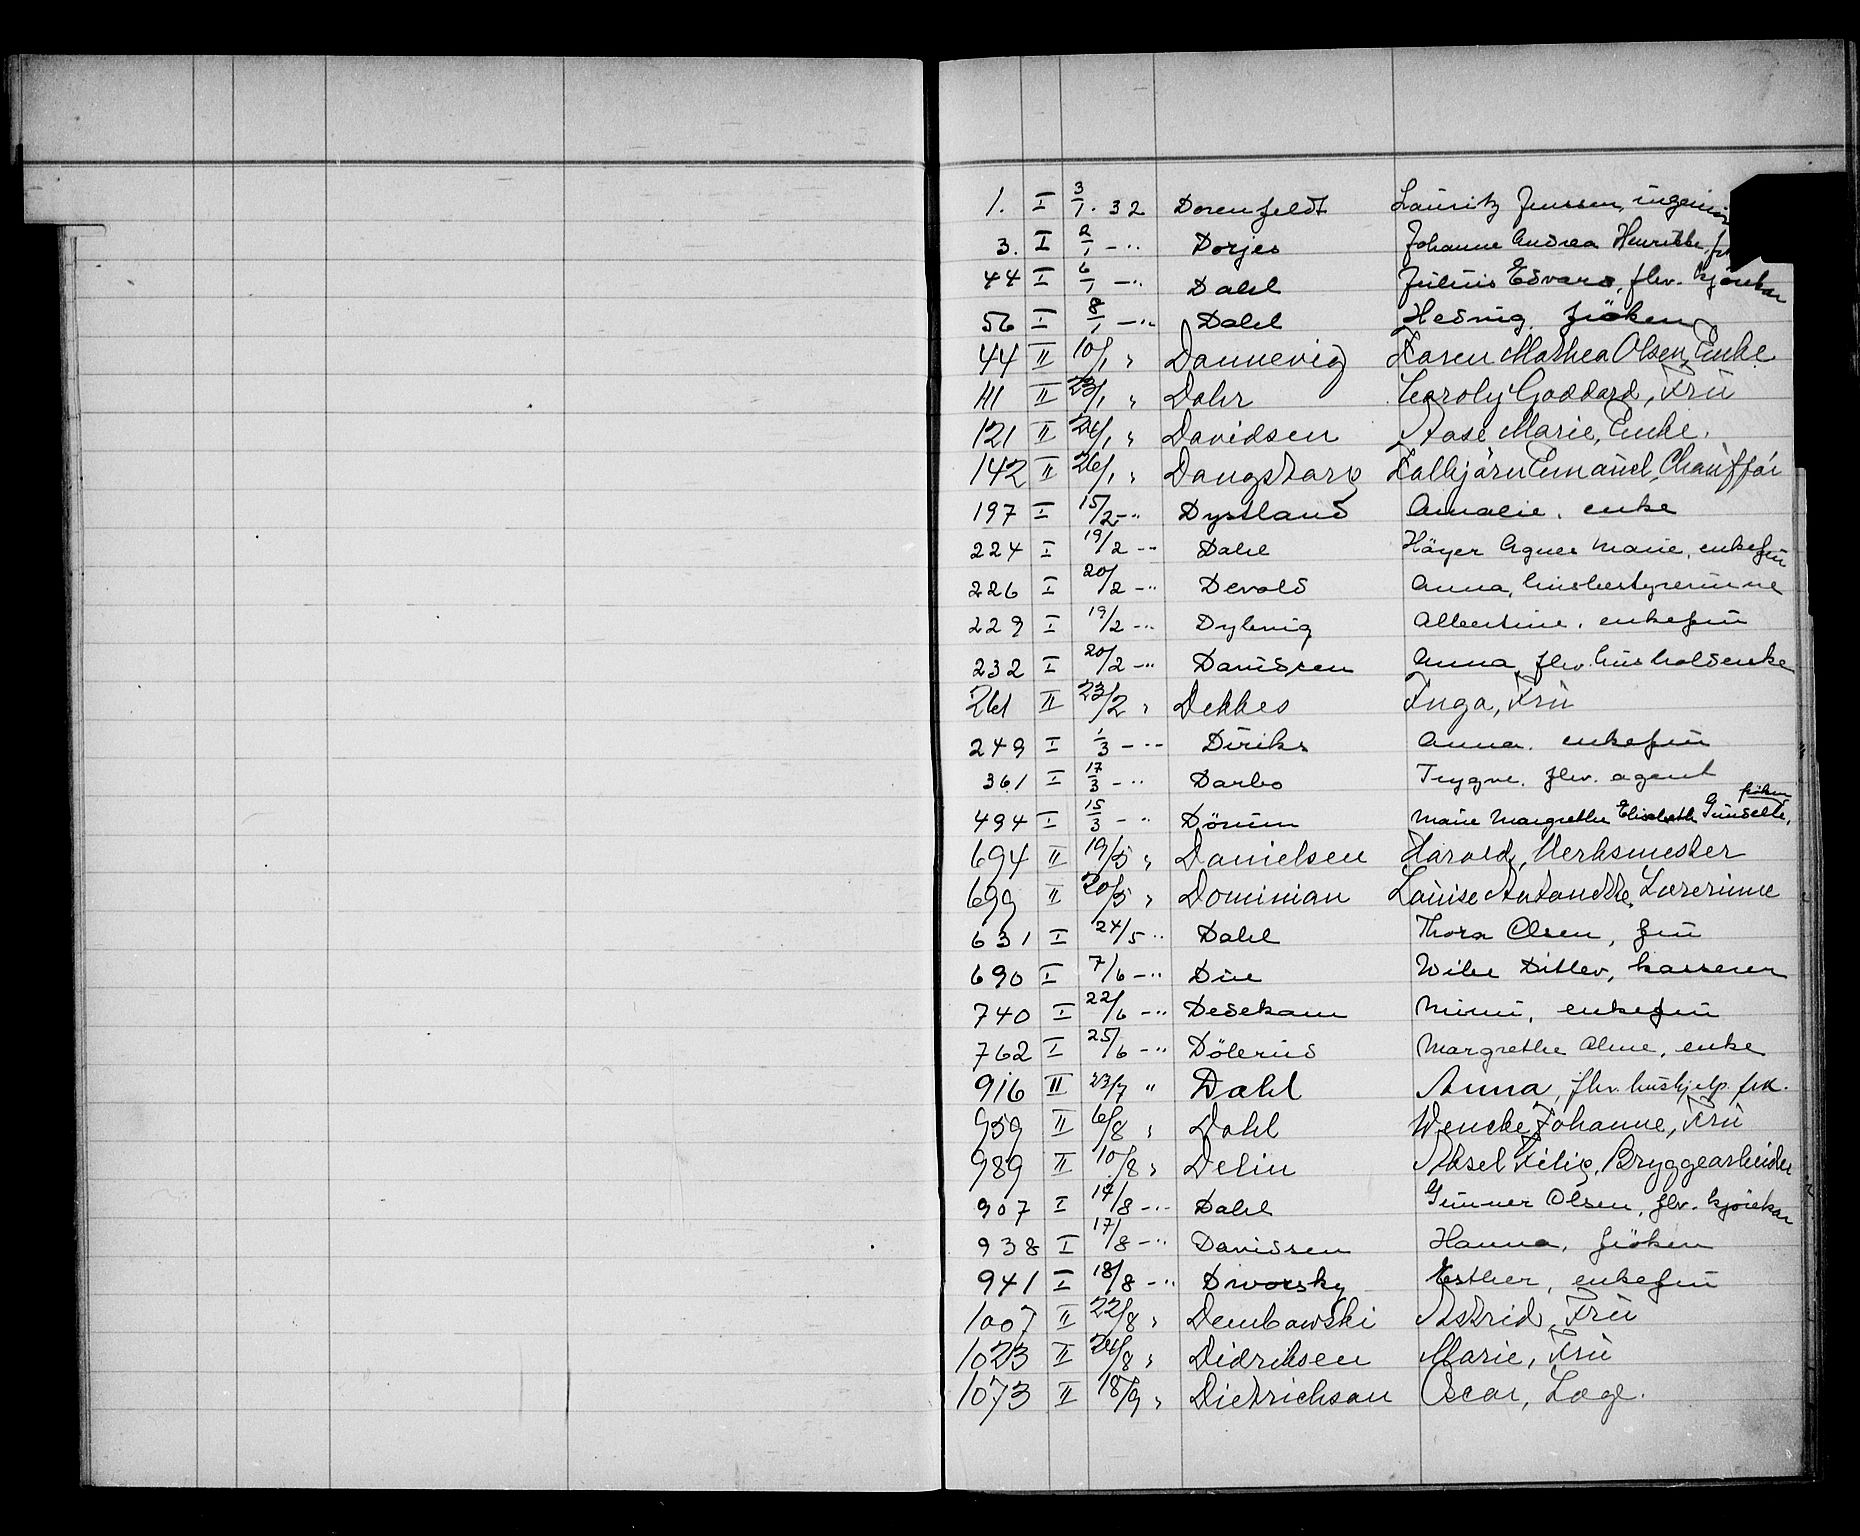 1. I 3/1. 32 Dorenfeldt Lauritz Jenssen, ingeniør
3. I 2/1 - " Dorjes Johanne Andrea Henrikke,
44 I 6/1 - " Dahl Julius Edvard, fhv. kjørekar
56 I 8/1 - " Dahl Hedvig, frøken
44 II 10/1 " Dannevig Karen Mathea Olsen, Enke
111 II 23/1 " Dahr Caroly Goddard, Frü
121 II 24/1 " Davidsen Aase Marie, Enke.
142 II 26/1 " Dangstorp Kolbjörn Emanuel, Chauffør
197 I 15/2 - " Dyssland Amalie, enke
224 I 19/2 - " Dahl Høyer Agnes Marie, enkefru
226 I 20/2 - " Devold Anna, husbestyrerinne
229 I 19/2 - " Dybvig Albertine, enkefrü
232 I 20/2 - " Davidsen Anna, fhv. husholderske
261 II 23/2 " Dekkes Inga, Frü
249 I 1/3 - " Diriks Anna, enkefrü
361 I 17/3 - " Darbo Trygve, fhv. agent
494 I 15/3 - " Dørum Marie Margrethe Elisabeth Gundelle, frøken
694 II 19/5 " Danielsen Harald, Verksmester
699 II 20/5 " Dominian Louise Antonette, Lærerinne
631 I 24/5 " Dahl Thora Olsen, frü
690 I 7/6 - " Due Wibe Ditlev, kasserer
740 I 22/6 - " Dedekam Mimi, enkefrü
762 I 25/6 - " Dølerud Margrethe Aline, enke
916 II 23/7 " Dahl Anna, fhv. hushjelp, frk.
959 II 6/8 " Dahl Wencke Johanne, Frü
989 II 10/8 " Delin Aksel Filip, Bryggearbeider
907 I 14/8 - " Dahl Gunner Olsen, fhv. kjørekar
938 I 17/8 - " Davidsen Hanna, frøken
941 I 18/8 - " Dworsky Esther, enkefrü
1007 II 22/8 " Dembowski Astrid, Frü
1023 II 24/8 " Didriksen Marie, Frü
1073 II 18/9 " Dietrichson Oscar, Læge.